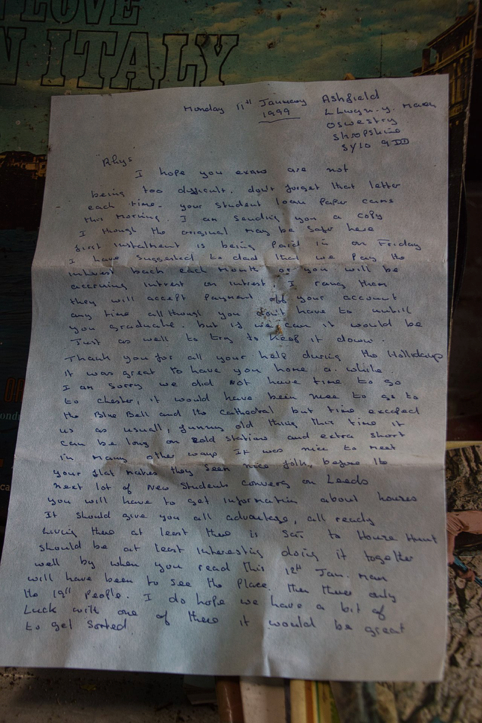 LOVE
N ITALY
Monday 11th January
1999
Ashfield
Llwyn-y-Maen
Oswestry
Shropshire
SY10 9DD
Rhys
I hope you exams are not
being too difficult. don't forget that letter
each time. your student loan paper came
this morning. I am sending you a copy
I though the original may be safer here
first instalment is being paid in on Friday
I have suggested to dad that we pay the
interest back each month or you will be
accruing intrest on intrest. I rang them
they will accept payment off your account
any time allthough you don't have to untill
you graduate. but if we can it would be
Just as well to try to keep it down.
Thank you for all your help during the Holidays
it was great to have you home a while
I am sorry we did not have time to go
to chester, it would have been nice to go to
the Blue Bell and the Cathedral but time escaped
us as usuall, funny old thing this time it
can be long on cold stations and extra short
in many other ways it was nice to meet
your flat mates they seem nice folk, before the
next lot of new students convers on Leeds
you will have to get information about houses
It should give you all advantage, all ready
living there at least there is Sam to House Hunt
should be at least interesting doing it together
well by when you read this 12th Jan. man
will have been to see the place, then theres only
the 19th people. I do hope we have a bit of
Luck with one of these it would be great
to get sorted